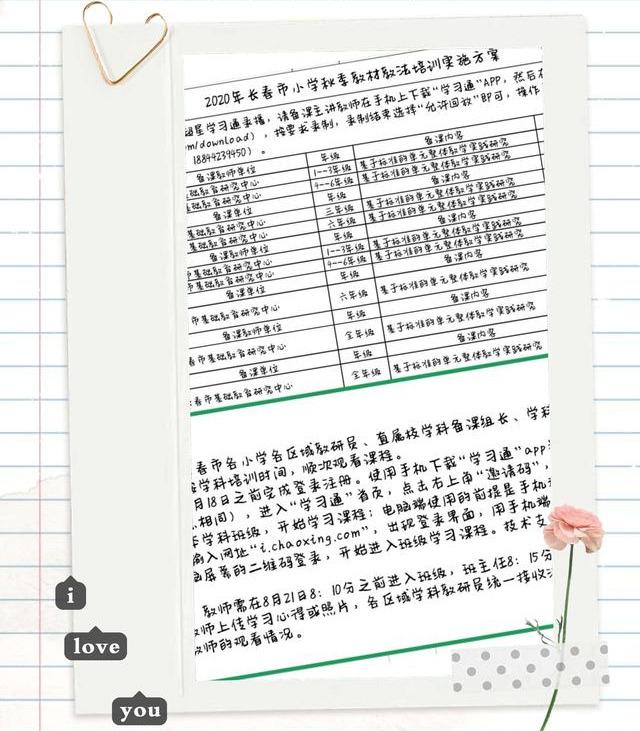 2020年长春市小学秋季教材教法培训实施方案
超星学习通录播，请备课主讲教师在手机上下载“学习通”APP，然后在
m/download），按要求录制，录制结束选择“允许回放”即可，操作
18844239450）。
备课教师单位 年级 备课内容
基础教育研究中心 1--3年级 基于标准的单元整体教学实践研究
基础教育研究中心 4--6年级 基于标准的单元整体教学实践研究
备课单位 年级 备课内容
基础教育研究中心 三年级 基于标准的单元整体教学实践研究
基础教育研究中心 六年级 基于标准的单元整体教学实践研究
备课教师单位 年级 备课内容
基础教育研究中心 1--3年级 基于标准的单元整体教学实践研究
市基础教育研究中心 4--6年级 基于标准的单元整体教学实践研究
备课单位 年级 备课内容
市基础教育研究中心 六年级 基于标准的单元整体教学实践研究
备课教师单位 年级 备课内容
春市基础教育研究中心 全年级 基于标准的单元整体教学实践研究
备课单位 年级 备课内容
长春市基础教育研究中心 全年级 基于标准的单元整体教学实践研究
春市各小学各区域教研员、直属校学科备课组长、学科
学科培训时间，顺次观看课程。
月18日之前完成登录注册。使用手机下载“学习通”app
相同），进入“学习通”首页，点击右上角“邀请码”，
学科班级，开始学习课程；电脑端使用的前提是手机
输入网址“i.chaoxing.com”，出现登录界面，用手机端
屏幕的二维码登录，开始进入班级学习课程。技术支
教师需在8月21日8：10分之前进入班级，班主任8：15分
教师上传学习心得或照片，各区域学科教研员统一接收
教师的观看情况。
i
love
you